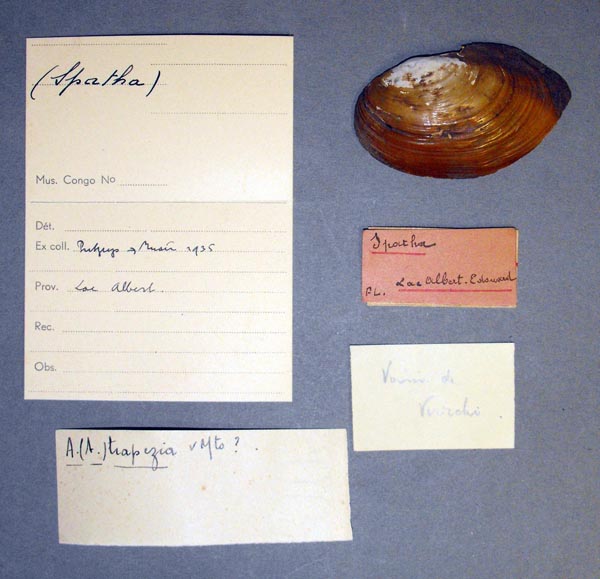 (Spatha)
Mus. Congo No
Dét.
Ex coll. Putzeys → Musée 1935
Prov. Lac Albert.
Rec.
Obs.
Spatha
PL. Lac Albert-Edouard
Voisin de
A.(A.) trapezia vMts ?.